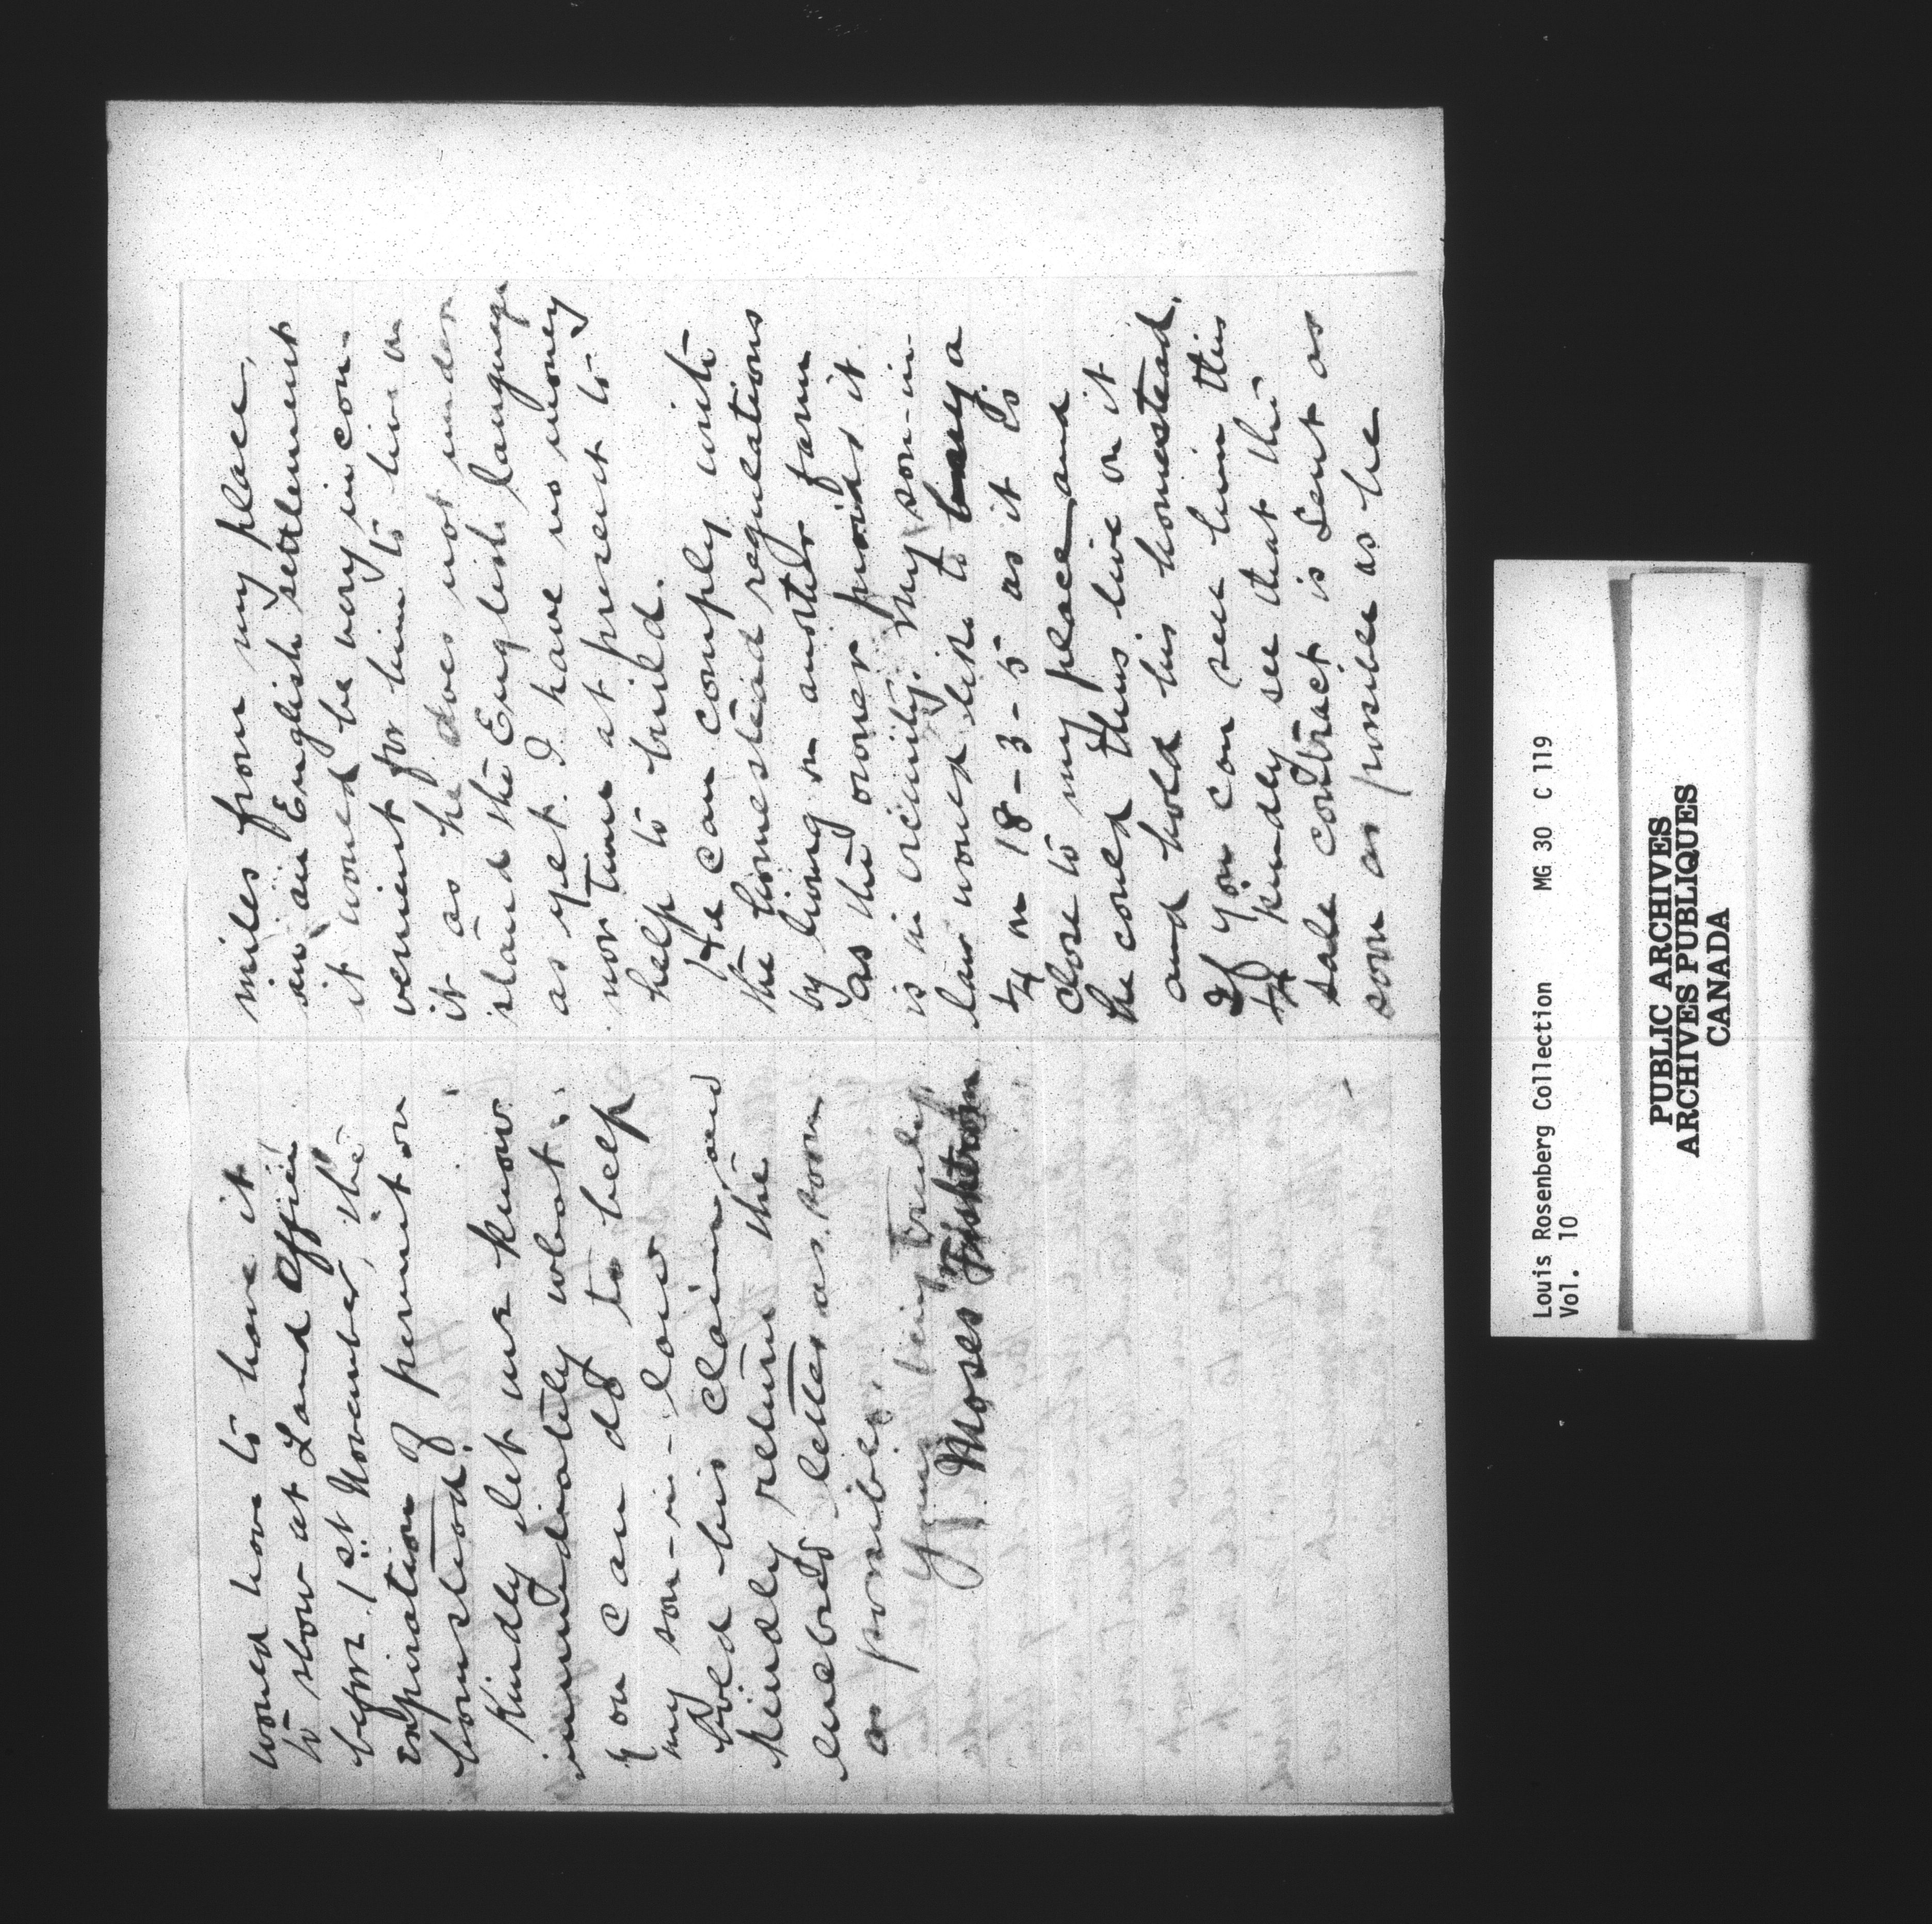 miles from my place,
in an English settlement
it would be very incon-
venient for him to live on
it as he does not under
stand the English language
as yet. I have no money
nor time at present to
help to build.
He can comply with
the homestead regulations
by living on another farm
as the owner provided it
is in vicinity. My son-in-
law would like to buy a
1/4 on 18-3-5 as it is
close to my place and
he could thus live on it
and hold his homestead.
If you can see him this
kindly see that the
sale contract is sent as
soon as possible as he
would have to have it
to show at Land Office
before 1st November, the
expiration of permit on
homestead.
Kindly let me know
immediately what
you can do to help
my son-in-law
hold his claim, and
kindly return the
enclosed letter as soon
as possible,
Yours very truly
Moses Fishtrom
Louis Rosenberg Collection MG 30 C 119
Vol. 10
PUBLIC ARCHIVES
ARCHIVES PUBLIQUES
CANADA